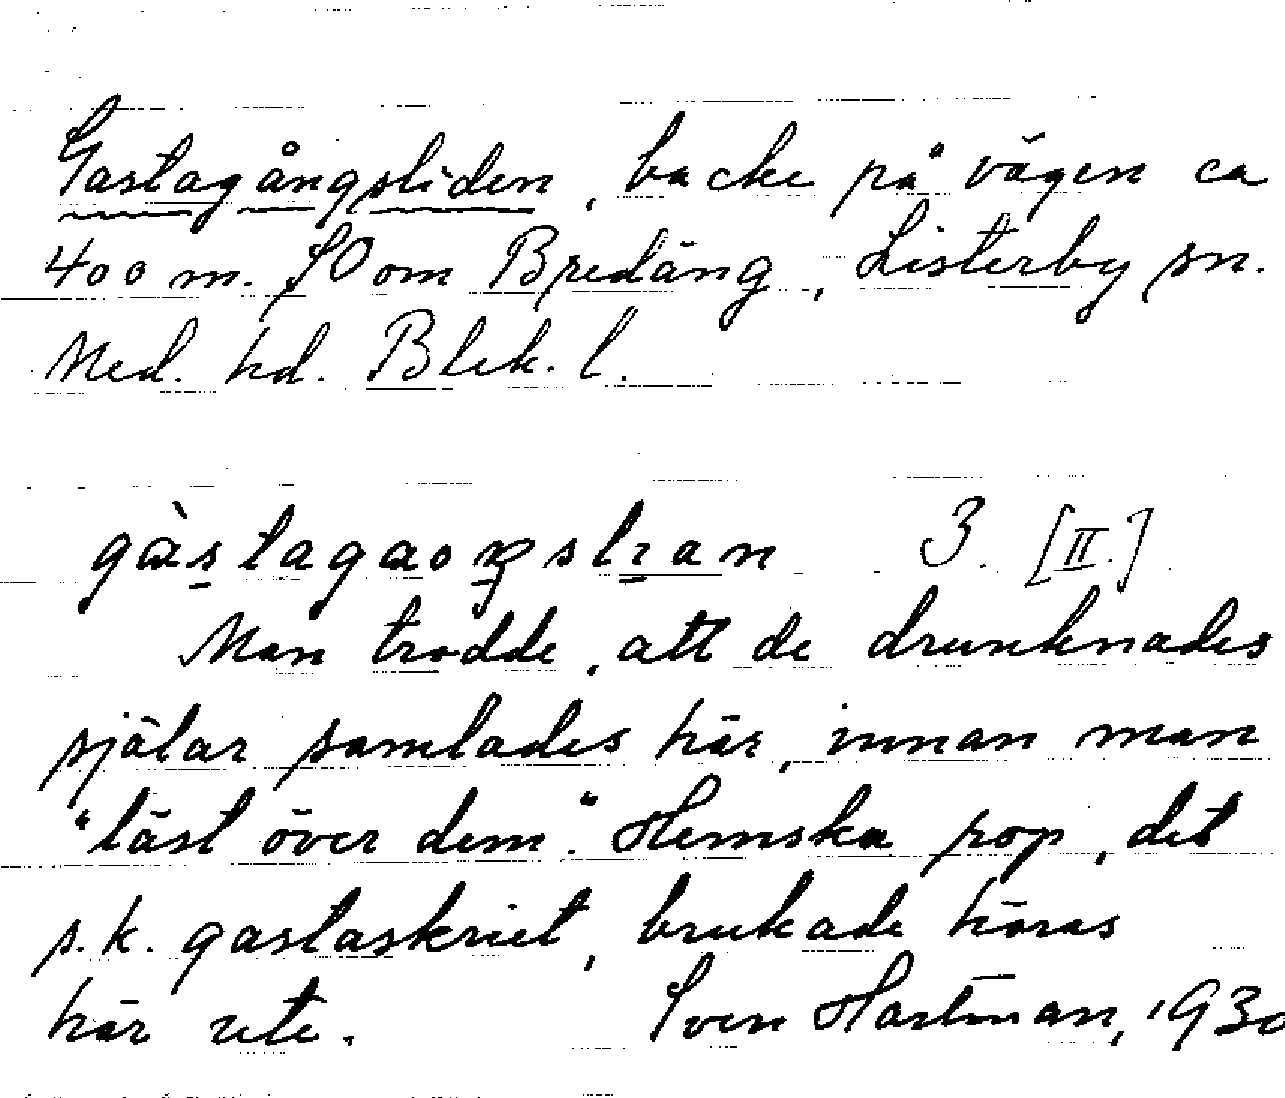 Gastagångsliden, backe på vägen ca
400 m. SO om Bredäng, Listerby sn.
Med. hd. Blek. l.
3. [II.]
Man trodde, att de drunknades
själar samlades här, innan man
"läst över dem". Hemska rop, det
s.k. gastaskriet, brukade höras
här ute. Sven Hartman, 1930